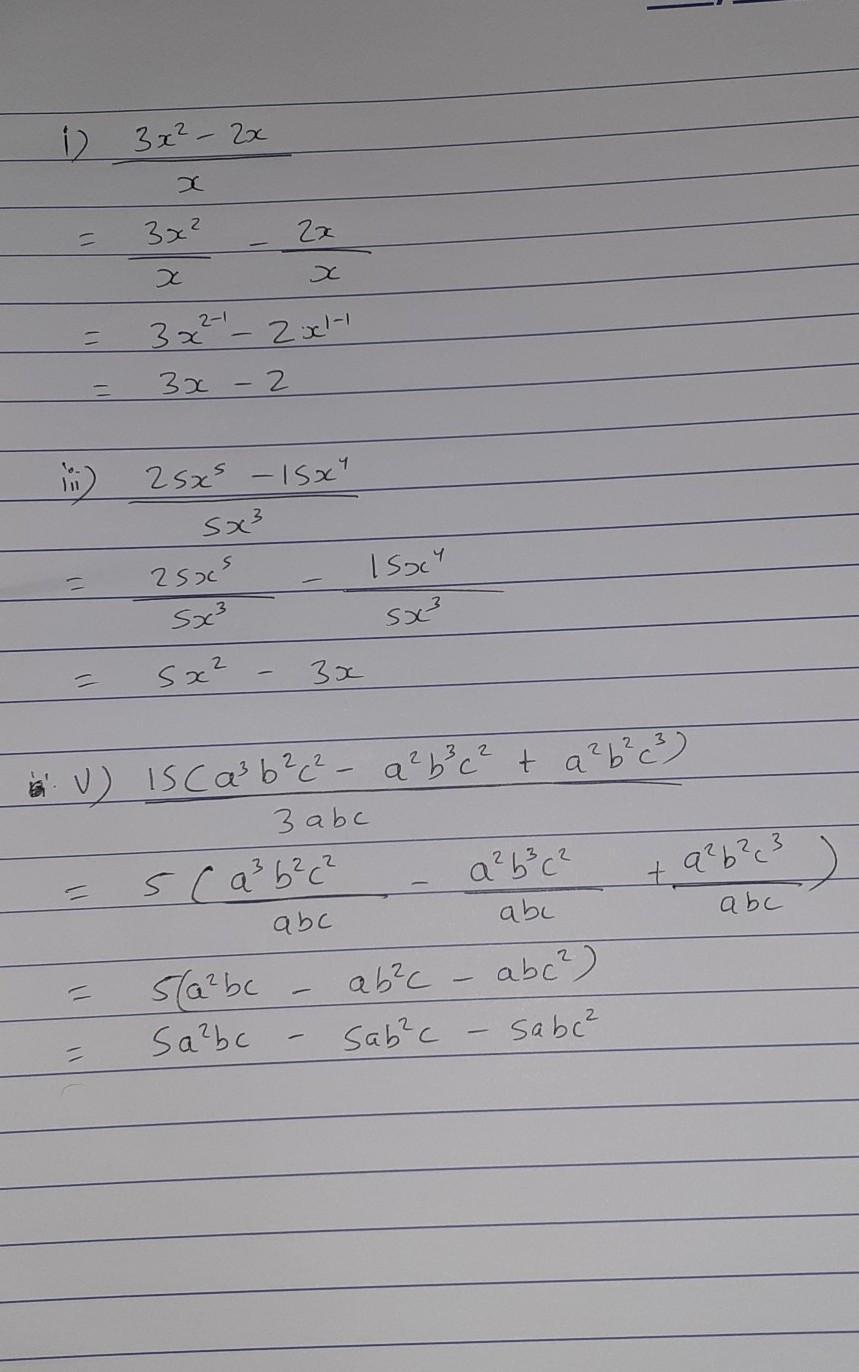 i) (3x² - 2x) / x
= 3x²/x - 2x/x
= 3x²⁻¹ - 2x¹⁻¹
= 3x - 2
iii) (25x⁵ - 15x⁴) / 5x³
= 25x⁵/5x³ - 15x⁴/5x³
= 5x² - 3x
v) 15(a³b²c² - a²b³c² + a²b²c³) / 3abc
= 5(a³b²c²/abc - a²b³c²/abc + a²b²c³/abc)
= 5(a²bc - ab²c - abc²)
= 5a²bc - 5ab²c - 5abc²